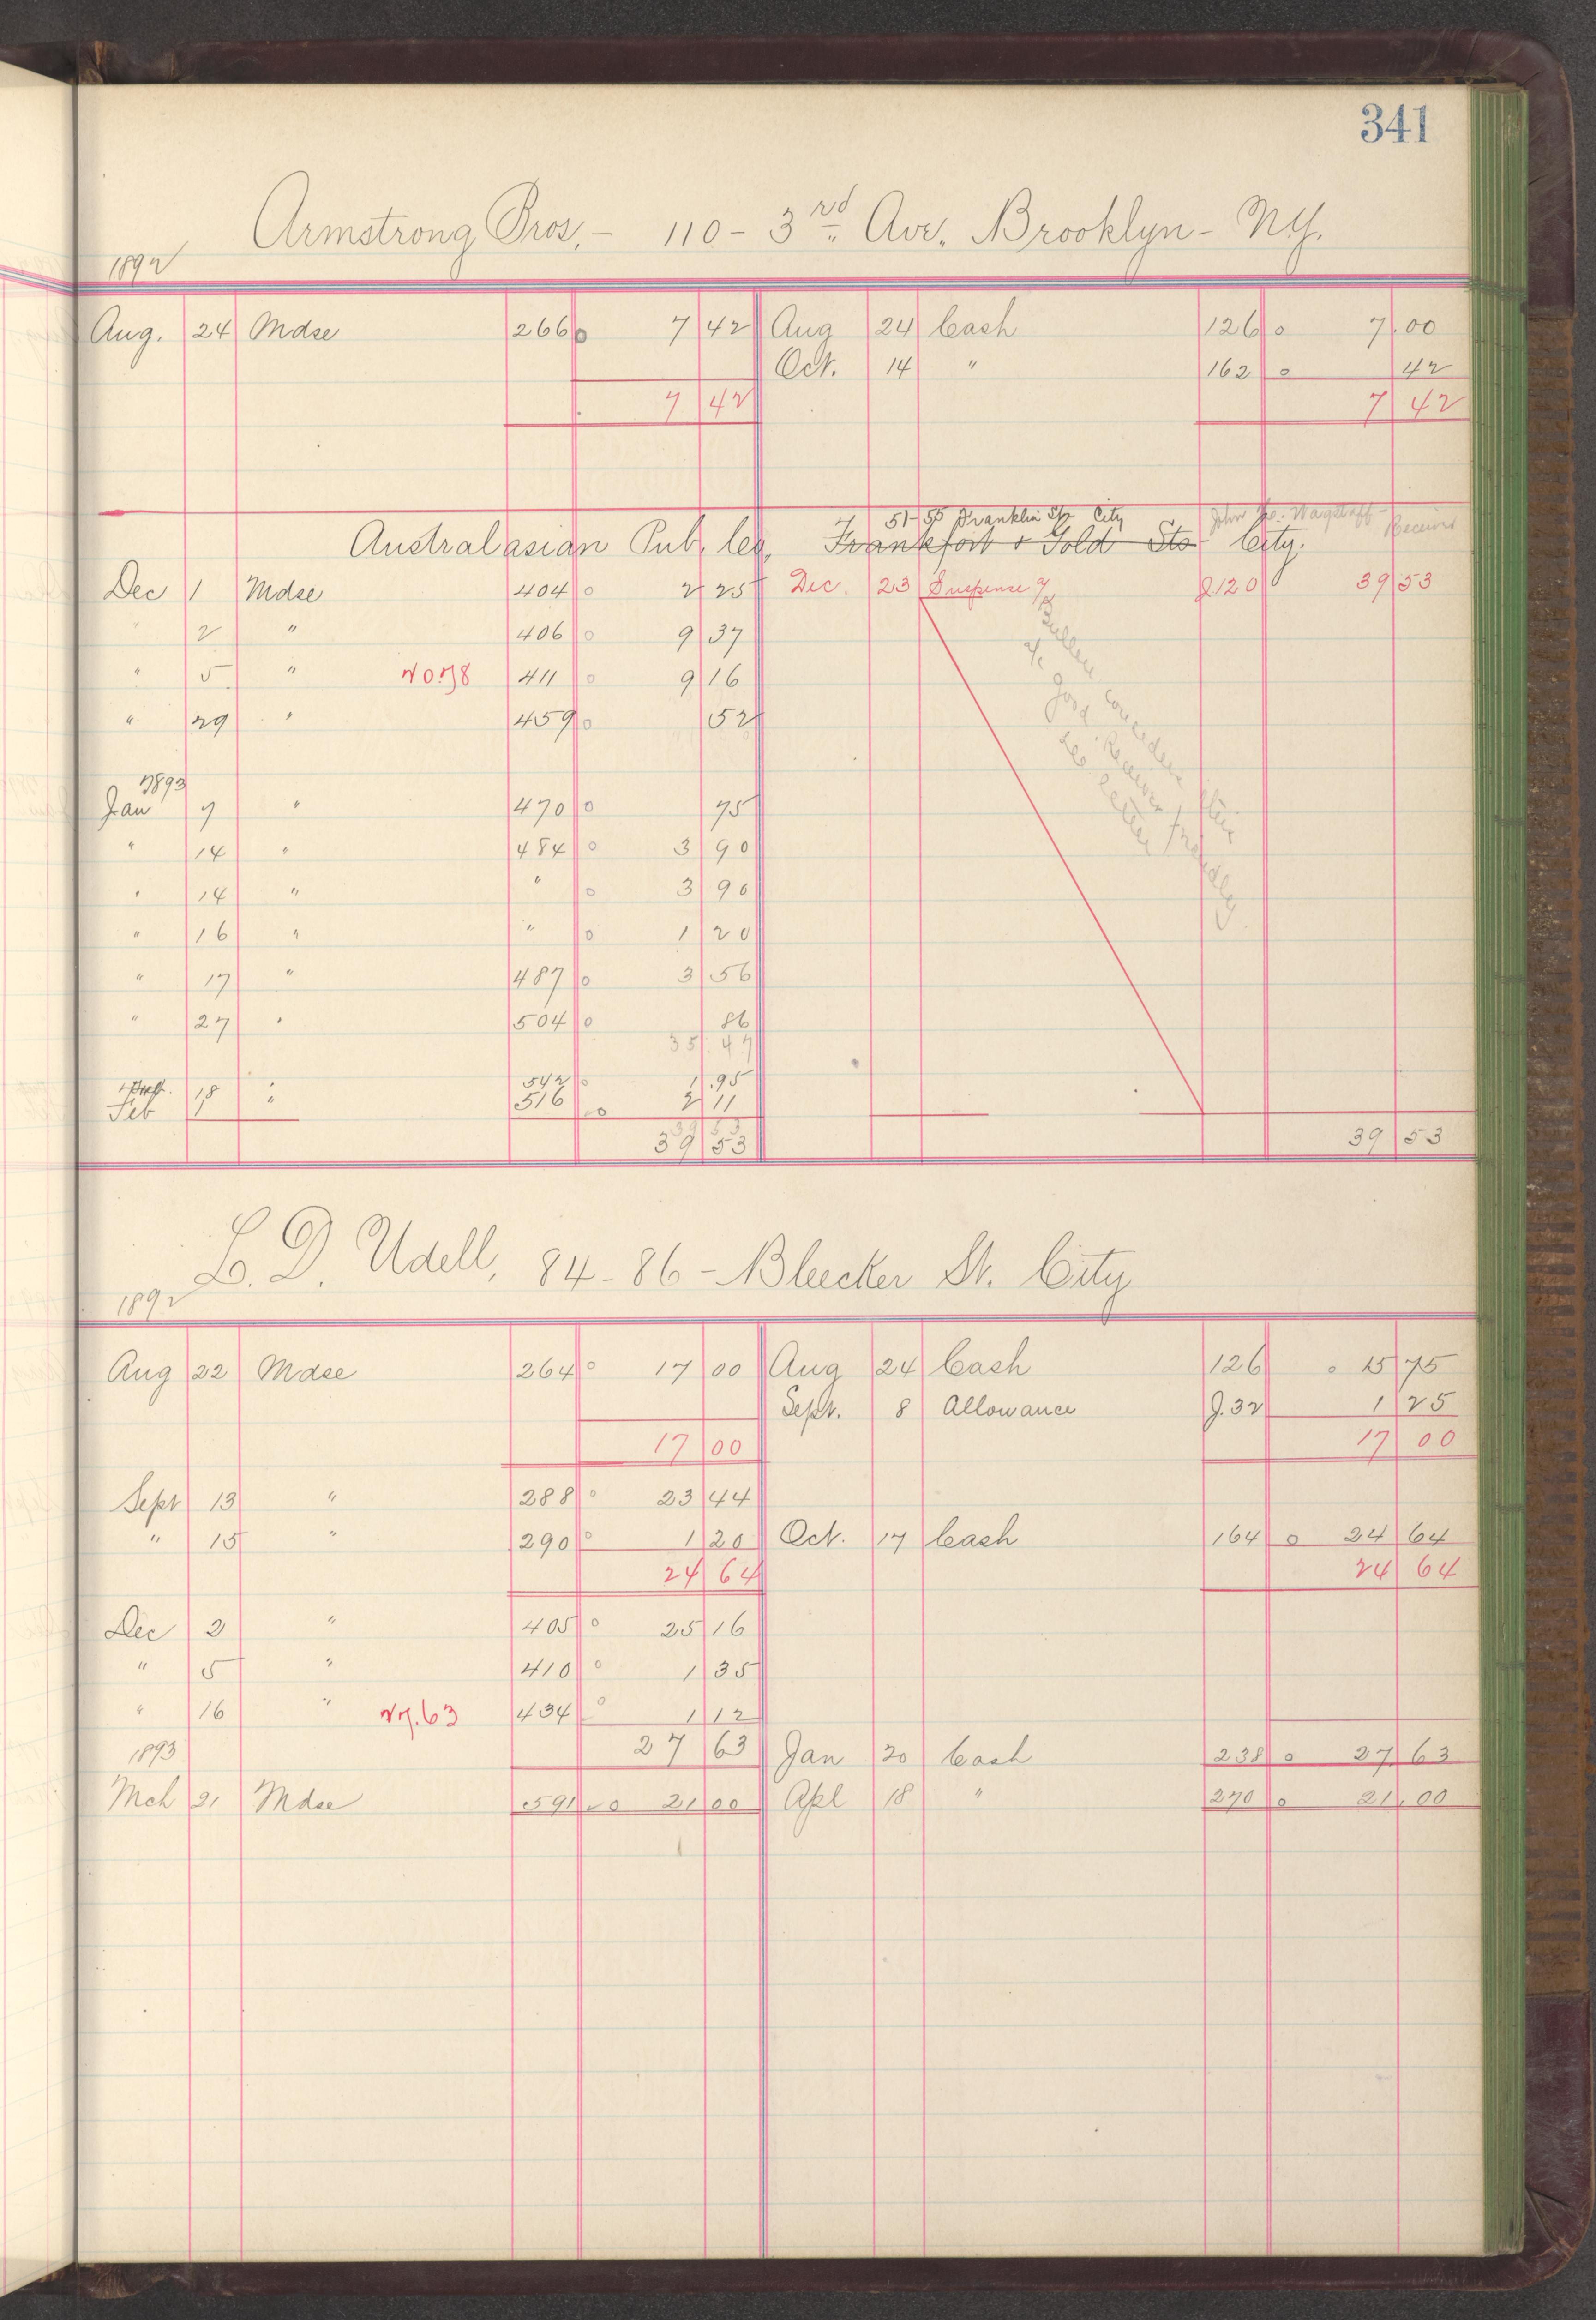 341
Armstrong Bros. - 110 - 3rd Ave. Brooklyn - N.Y.
1892
Aug. 24 Mdse 266 o 7 42 Aug 24 Cash 126 o 7.00
Oct. 14 " 162 o 42
7 42 7 42
51-55 Franklin St City John Wagstaff - Receiver
Australasian Pub. Co. Frankfort & Gold Sts City.
Dec 1 Mdse 404 o 2 25 Dec. 23 Suspense a/c J.120 39 53
" 2 " 406 o 9 37
" 5 " 411 o 9 16
" 29 " 459 o 52
1893
Jan 7 " 470 o 75
" 14 " 484 o 3 90
" 14 " " o 3 90
" 16 " " o 1 20
" 17 " 487 o 3 56
" 27 " 504 o 86
35.47
18 " 542 o 1.95
Feb 1 " 516 o 2 11
39 53
39 53 39 53
a/c good Receiver friendly
see letter
L. D. Udell, 84-86 - Bleecker St. City
1892
Aug 22 Mdse 264 o 17 00 Aug 24 Cash 126 o 15 75
Sept. 8 Allowance J.32 1 25
17 00 17 00
Sept 13 " 288 o 23 44
" 15 " 290 o 1 20 Oct. 17 Cash 164 o 24 64
24 64 24 64
Dec 2 " 405 o 25 16
" 5 " 410 o 1 35
" 16 " 27.63 434 o 1 12
1893 27 63 Jan 20 Cash 238 o 27 63
Mch 21 Mdse 591 o 21 00 Apl 18 " 270 o 21.00